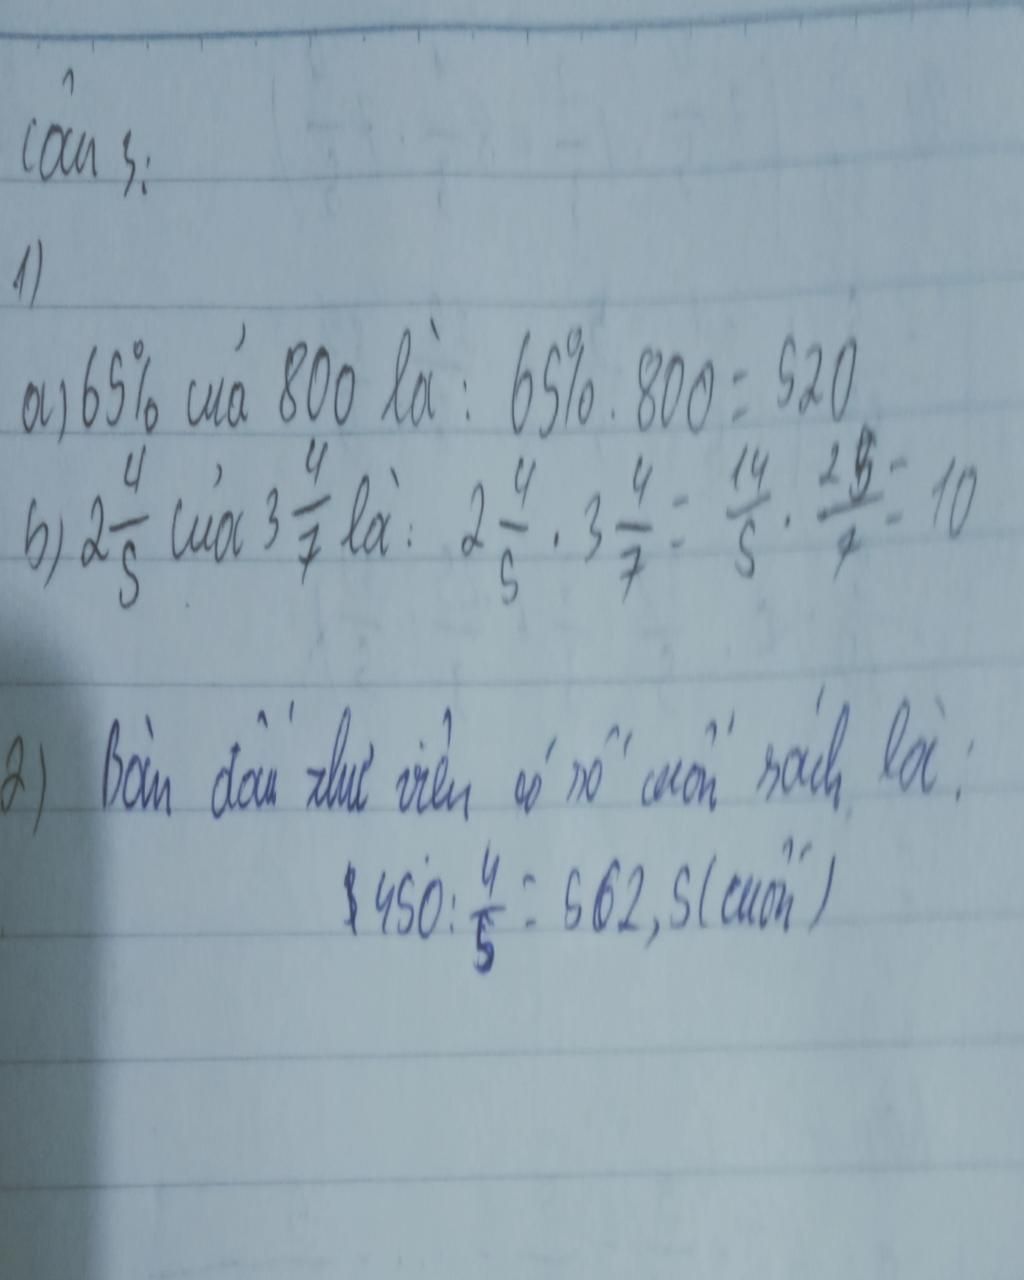 Câu 3:
1)
a) 65% của 800 là: 65% . 800 = 520
b) 2 4/5 của 3 4/7 là: 2 4/5 . 3 4/7 = 14/5 . 25/7 = 10
2) Ban đầu thư viện có số cuốn sách là:
450 : 4/5 = 562,5 (cuốn)